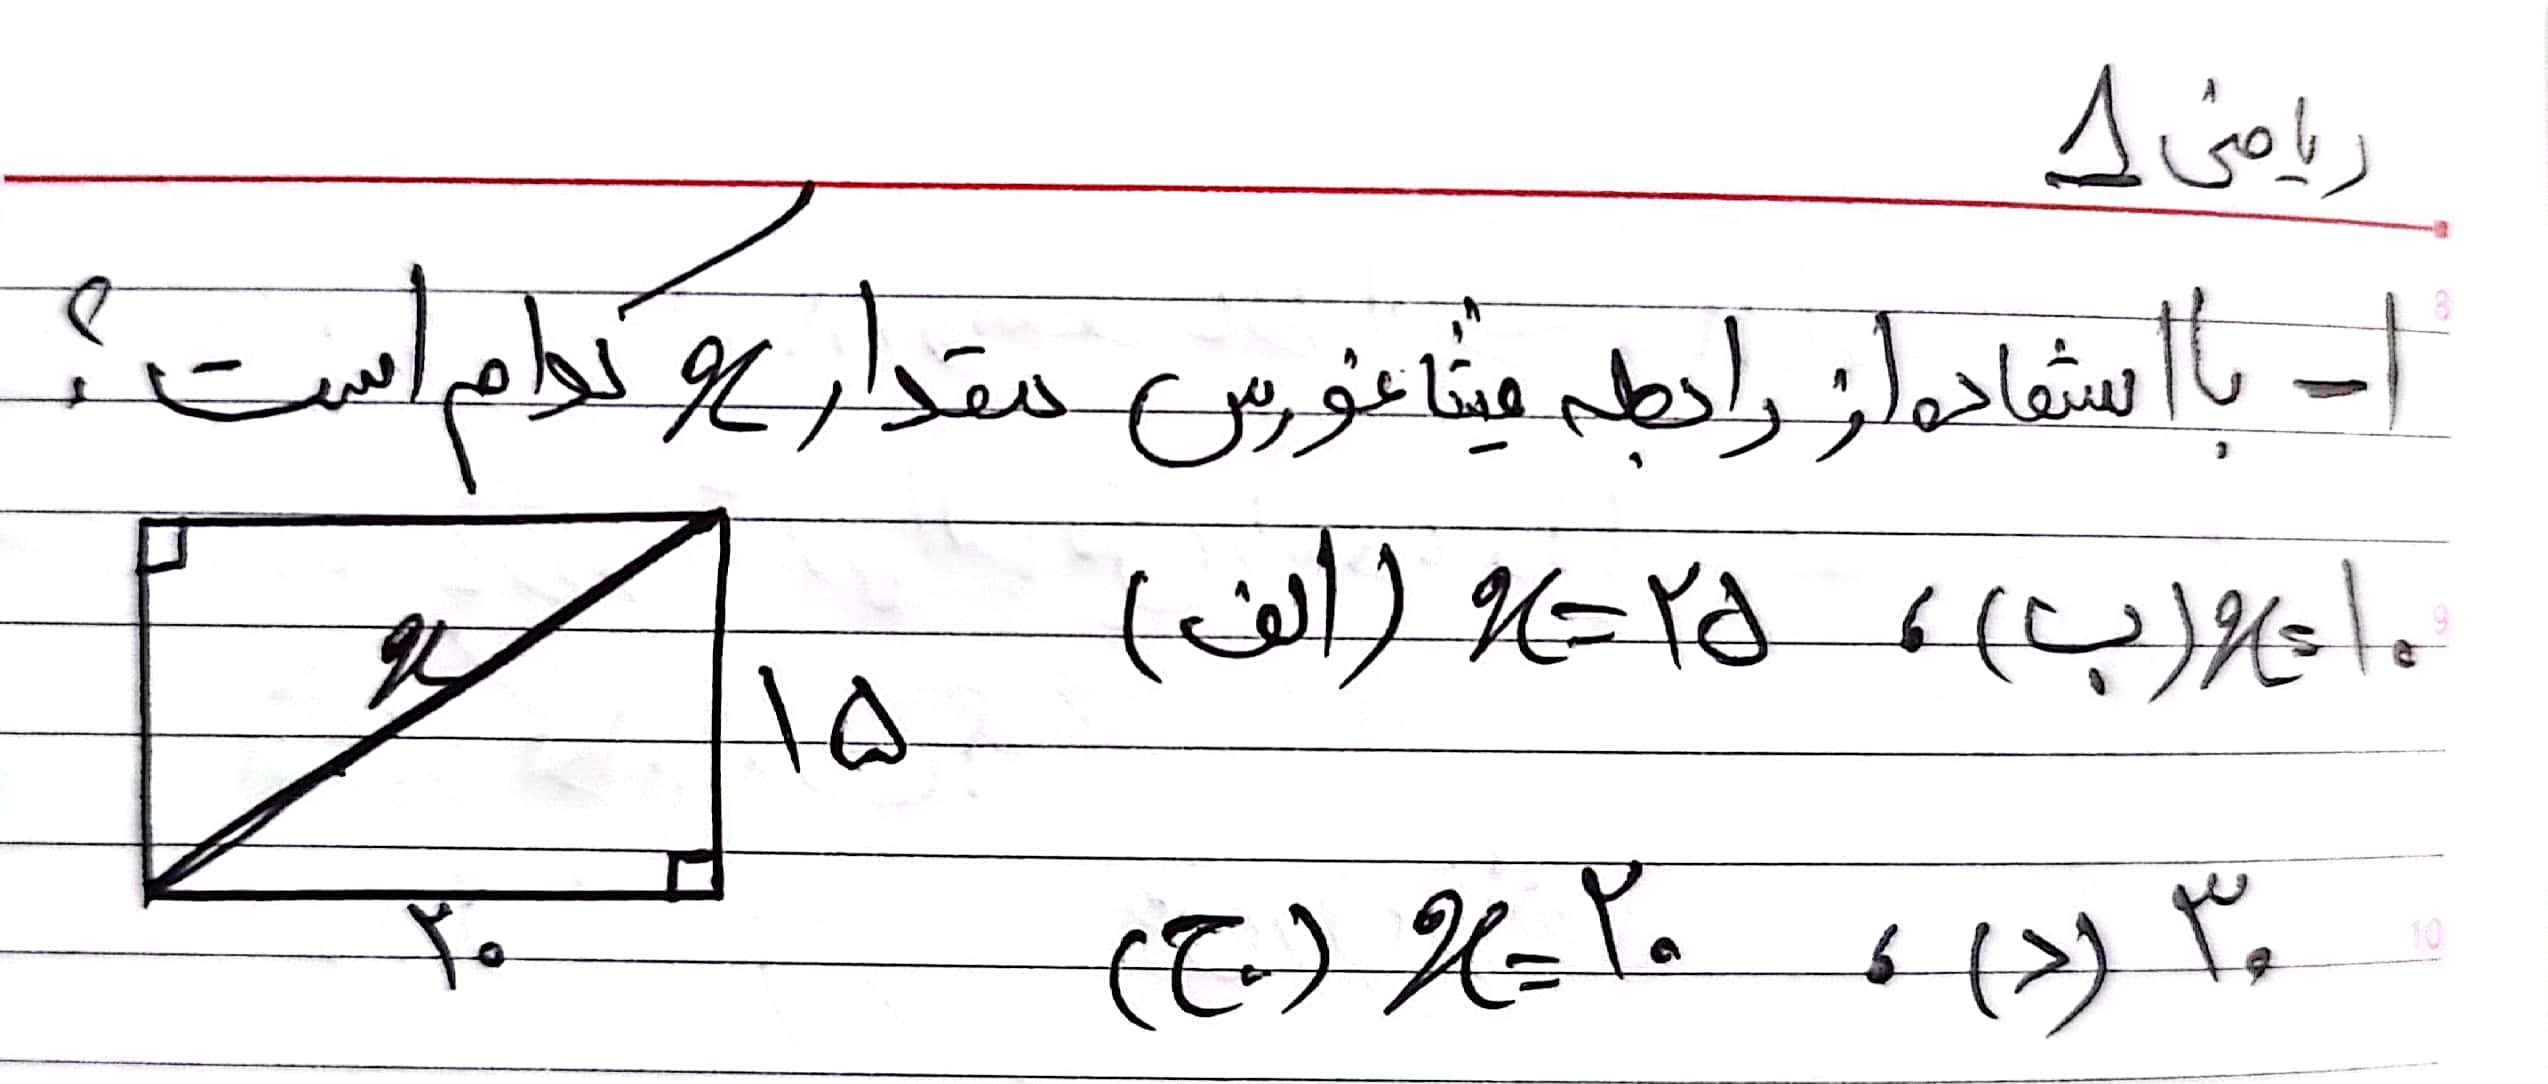 ریاضی 1
۱- با استفاده از رابطه فیثاغورس مقدار x کدام است؟
(الف) x=۲۵ ، (ب) x=۱۰
x
۱۵
(ج) x=۲۰ ، (د) ۳۰
۲۰